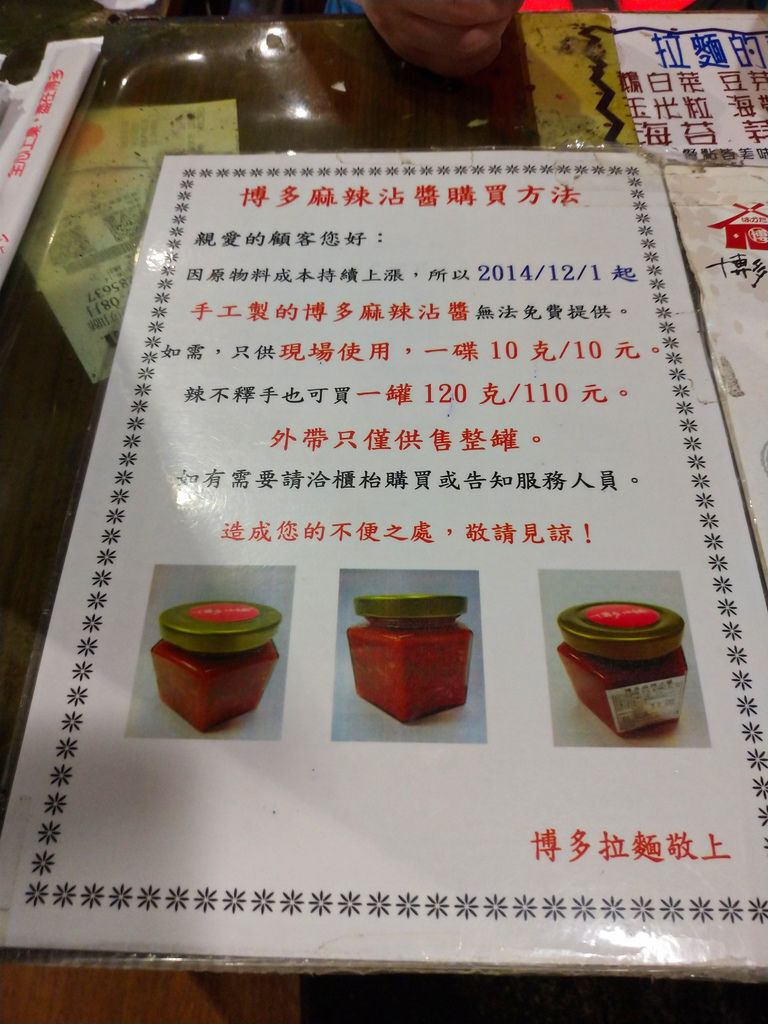 拉麵的
鵝白菜 豆芽
玉米粒 海
海苔
博多麻辣沾醬購買方法
親愛的顧客您好：
因原物料成本持續上漲，所以 2014/12/1 起
手工製的博多麻辣沾醬無法免費提供。
如需，只供現場使用，一碟 10 克/10 元。
辣不釋手也可買一罐 120 克/110 元。
外帶只僅供售整罐。
如有需要請洽櫃枱購買或告知服務人員。
造成您的不便之處，敬請見諒！
博多拉麵敬上
博
博多